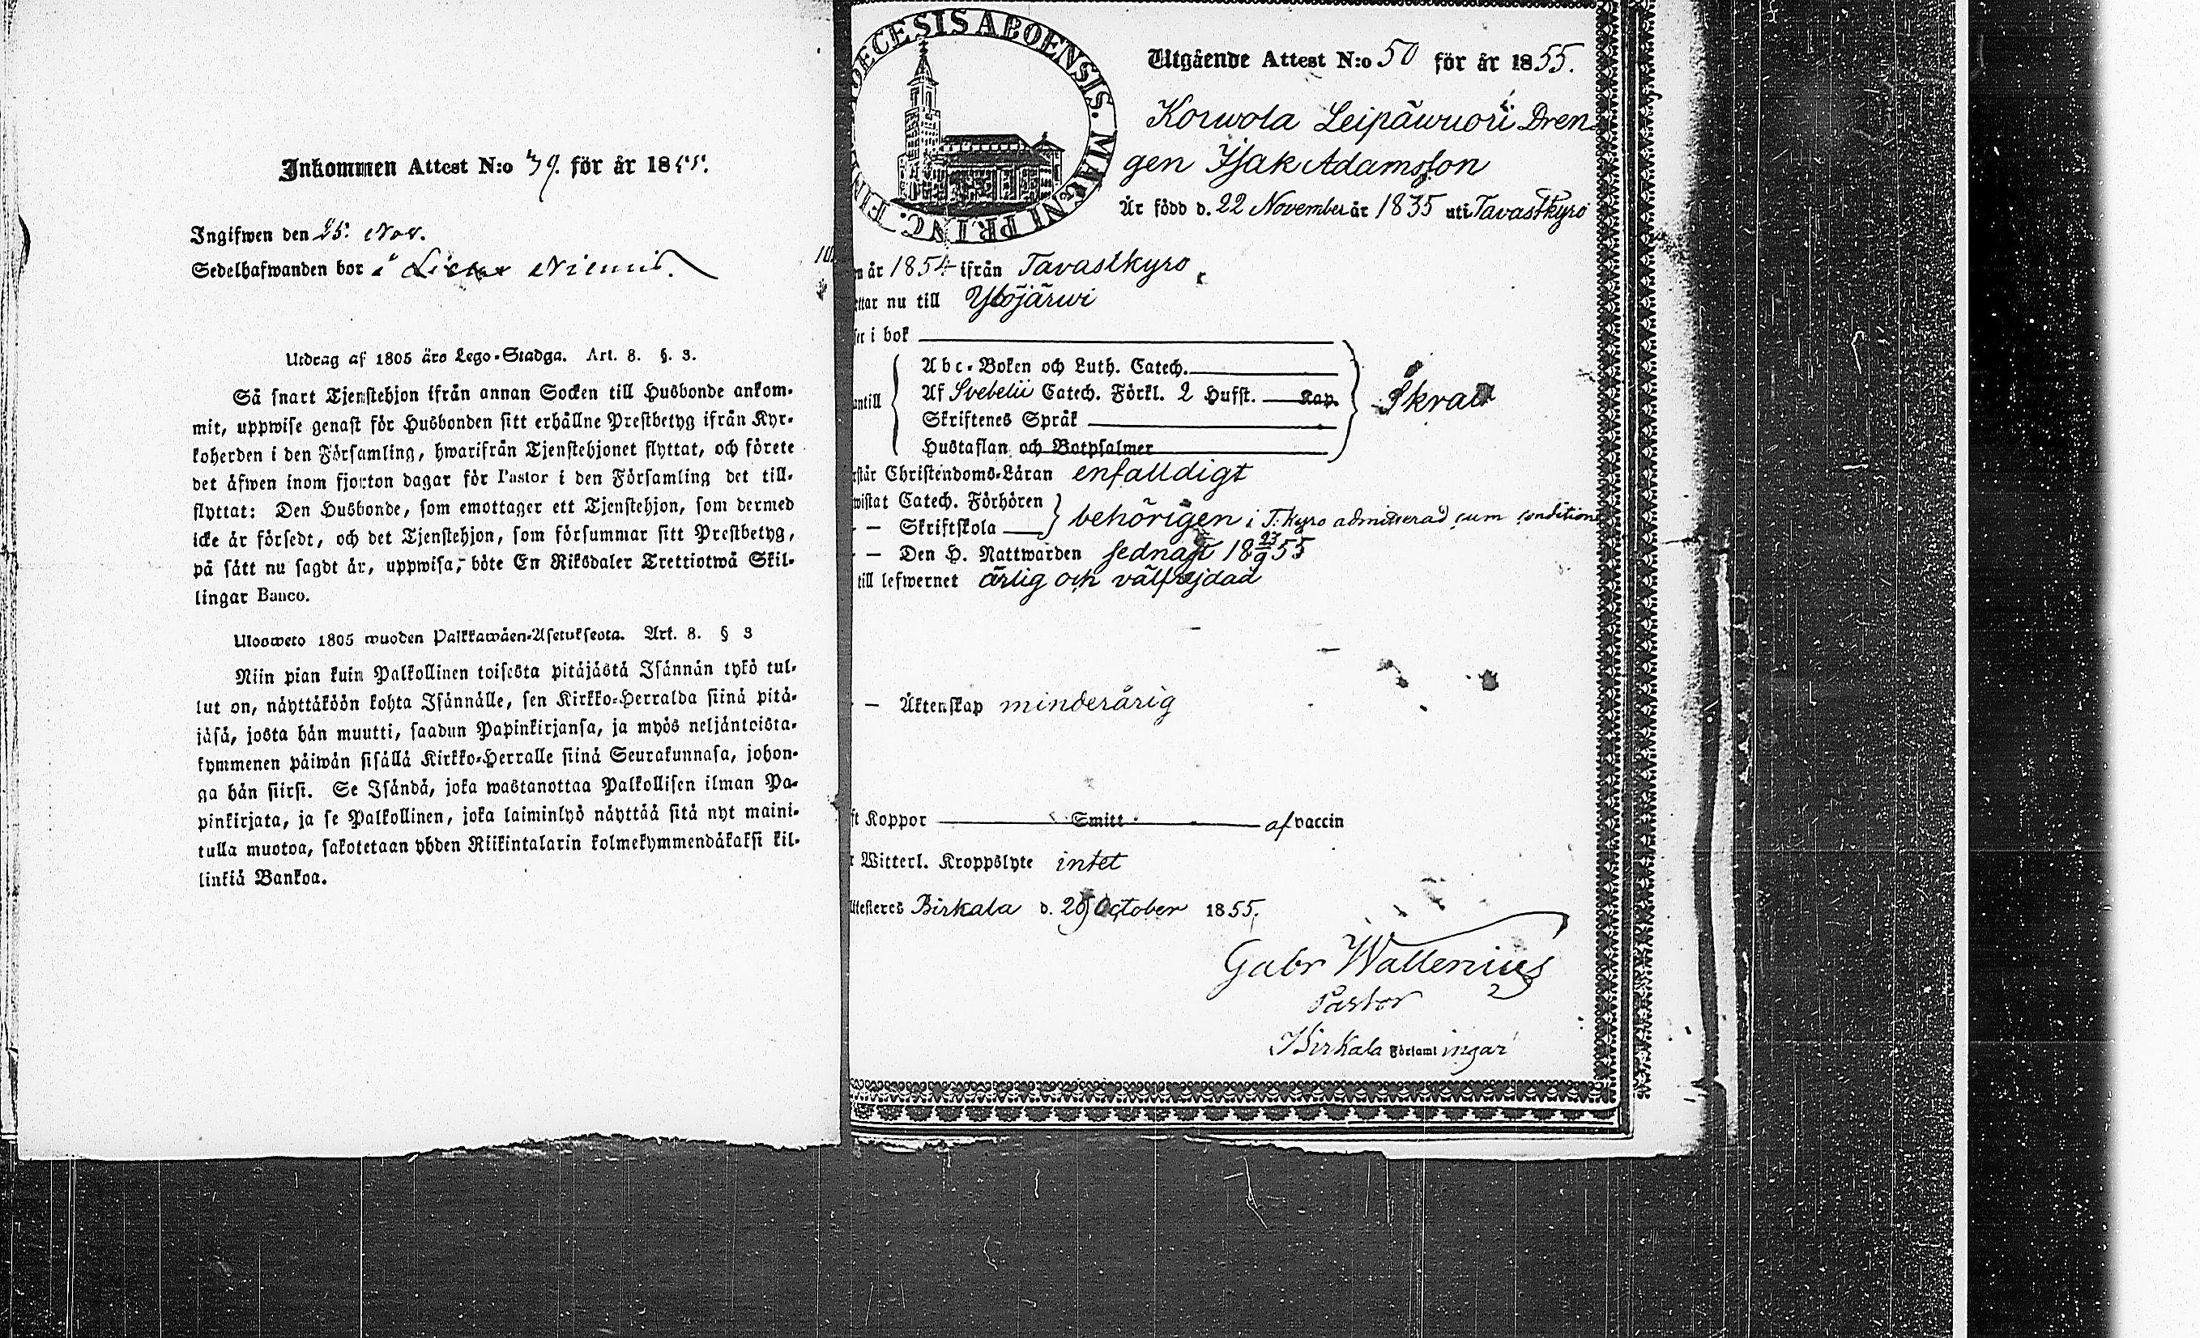 Inkommen Attest N:o 39. för år 1855.
Ingifwen den 25. Nov.
Sedelhafwanden bor i Niemis.
Utdrag af 1805 års Lego-Stadga. Art. 8. §. 3.
Så snart Tjenstehjon ifrån annan Socken till Husbonde ankom-
mit, uppwise genast för Husbonden sitt erhållne Prestbetyg ifrån Kyr-
koherden i den Församling, hwarifrån Tjenstehjonet flyttat, och förete
det äfwen inom fjorton dagar för Pastor i den Församling det till-
flyttat: Den Husbonde, som emottager ett Tjenstehjon, som dermed
icke är försedt, och det Tjenstehjon, som försummar sitt Prestbetyg,
på sätt nu sagdt är, uppwisa, böte En Riksdaler Trettiotwå Skil-
lingar Banco.
Ulosweto 1805 wuoden Palkkawäen-Asetuksesta. Art. 8. § 3
Niin pian kuin Palkollinen toisesta pitäjästä Isännän tykö tul-
lut on, näyttäköön kohta Isännälle, sen Kirkko-Herralda siinä pitä-
jäsä, josta hän muutti, saadun Papinkirjansa, ja myös neljäntoista-
kymmenen päiwän sisällä Kirkko-Herralle siinä Seurakunnasa, johon-
ga hän siirsi. Se Isändä, joka wastanottaa Palkollisen ilman Pa-
pinkirjata, ja se Palkollinen, joka laiminlyö näyttää sitä nyt maini-
tulla muotoa, sakotetaan yhden Riikintalarin kolmekymmendäkaksi kil-
linkiä Bankoa.
DECESIS ABOENSIS. MAGNI PRINC. FIN
Utgående Attest N:o 50 för år 1855.
Korwola Leipäwuori Dren-
gen Isak Adamsson
Är född d. 22 November år 1835 uti Tavastkyro
n år 1854 ifrån Tavastkyro
ttar nu till Ylöjärwi
ser i bok
Abc-Boken och Luth. Catech.
antill Af Svebelii Catech. Förkl. 2 Hufst. Kap. Skral
Skriftenes Språk
Hustaflan och Botpsalmer
rstår Christendoms-Läran enfalldigt
wistat Catech. Förhören
— Skriftskola behörigen i T. kyro admitterad cum conditione
— Den H. Nattwarden sednast 18 23/9 55
till lefwernet ärlig och välfrejdad
— Äktenskap minderårig
ft Koppor Smitt af vaccin
r Witterl. Kroppslyte intet
ttesteres Birkala d. 29 October 1855.
Gabr Wallenius
Pastor
Birkala Församlingar